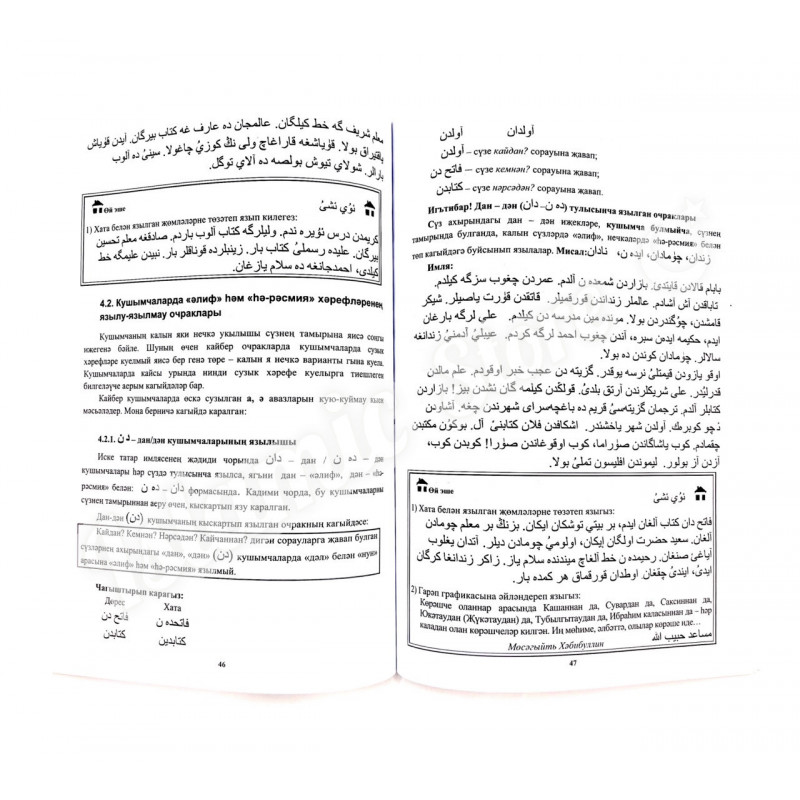 معلم شريف گه خط كيلگان. عالمجان ده عارف غه كتاب بيرگان. آيدن قۇياش
ياقتيراق بولا. قۇياشغه قاراغاچ ولى نڭ كوزيُ چاغولا. سينیُ ده آلوب
بارالر. شولاي تيوش بولصه ده آلاي توگل.
Өй эше
نۇي ئشیُ
1) Хата белән язылган җөмләләрне төзәтеп язып килегез:
كريمدن درس تۇيره ندم. وليلرگه كتاب آلوب باردم. صادقغه معلم تحسين
بيرگان. عليده رسملیُ كتاب بار. زينبلرده قوناقلر بار. نبيدن عليمگه خط
كيلدى، احمدجانغه ده سلام يازغان.
4.2. Кушымчаларда «әлиф» һәм «һә-рәсмия» хәрефләренең
язылу-язылмау очраклары
Кушымчаның калын яки нечкә укылышы сүзнең тамырына яисә соңгы
иҗегенә бәйле. Шуның өчен кайбер очракларда кушымчаларда сузык
хәрефләре куелмый яисә бер генә төре – калын я нечкә варианты гына куела.
Кушымчаларда кайсы урында нинди сузык хәрефе куелырга тиешлеген
билгеләүче аерым кагыйдәләр бар.
Кайбер кушымчаларда өскә сузылган а, ә авазларын кую-куймау кыен
мәсьәләдер. Мона берничә кагыйдә каралган:
4.2.1. دن – дан/дән кушымчаларының язылышы
Иске татар имлясенең җәдиди чорында دان – дан / ده ن – дән
кушымчалары һәр сүздә тулысынча язылса, ягъни дан – «әлиф», дән – «һә-
рәсмия» белән: دان – ده ن формасында. Кадими чорда, бу кушымчаларны
сүзнең тамырыннан аеру өчен, кыскартып язу каралган.
Дан-дән (دن) кушымчаның кыскартып язылган очракның кагыйдәсе:
Кайдан? Кемнән? Нәрсәдән? Кайчаннан? дигән сорауларга җавап булган
сүзләрнең ахырындагы «дан», «дән» (دن) кушымчаларда «дәл» белән «нун»
арасына «әлиф» һәм «һә-рәсмия» язылмый.
Чагыштырып карагыз:
Дөрес Хата
فاتح دن فاتحده ن
كتابدن كتابدين
46
آولدان آولدن
آولدن – сүзе кайдан? сорауына җавап;
فاتح دن – сүзе кемнән? сорауына җавап;
كتابدن – сүзе нәрсәдән? сорауына җавап.
Игътибар! Дан – дән (ده ن – دان) тулысынча язылган очраклары
Сүз ахырындагы дан – дән иҗекләре, кушымча булмыйча, сүзнең
тамырында булганда, калын сүзләрдә «әлиф», нечкәләрдә «һә-рәсмия» белән
төп кагыйдәгә буйсынып языла. Мисал: زندان، چۇمادان، ايده ن، نادان
Имля:
بابام قالادن قايتدیُ. بازاردن شمعده ن آلدم. عمردن چغوب سزگه كيلدم.
تاباقدن آش آشادم. عالملر زنداندن قورقميلر. قاتقدن قۇرت ياصيلر. شيكر
قامشدن، چۇگندردن بولا. مونده مين مدرسه دن كيلدم. علي لرگه بارغان
ايدم، حكيمه ايدەن سبره، آندن چغوب احمد لرگه كردم. عيبلیُ آدمنیُ زندانغه
سالالر. چۇمادان كوندن ده بولا.
اوقو يازودن قيمتلیُ نرسه يوقدر. گزيته دن عجب خبر اوقودم. علم مالدن
قدرليُدر. على شريكلرندن آرتق بلدیُ. قولكڭدن كيلمه گان نشدن بيز! بازاردن
كتابلر آلدم. ترجمان گزيته‌سیُ قريم ده باغچه‌سراى شهرندن چغه. آشاودن
نچو كوبرك. آولدن شهر ياخشندر. آفتوفدن فلان كتابنیُ آل. بوكۇن مكتبدن
چقمادم. كوب ياشاگاندن صۇراما، كوب اوقوغاندن صۇرا! كويدن كوب،
آزدن آز بولور. ليموندن افليسون تملی بولا.
Өй эше
نۇي ئشیُ
1) Хата белән язылган җөмләләрне төзәтеп языгыз:
فاتح دان كتاب آلغان ايدم، بر بيتي توشكان ايكان. بزنڭ بر معلم چومادن
آلغان. سعيد حضرت اولگان ايكان، اولوميُ چومادن ديلر. آتدان يغلوب
آياغى صنغان. رحيمده ن خط آلغاچ ميندنده سلام ياز. زاكر زندانغا كرگان
ايدى، اينديُ چقغان. اوطدان قورقماق هر كمده بار.
2) Гарәп графикасына әйләндереп языгыз:
Көрәшче оланнар арасында Кашаннан да, Сувардан да, Саксиннан да,
Юкәтаудан (Җүкәтаудан) да, Тубылгытаудан да, Ибраһим каласыннан да – һәр
каладан олан көрәшчеләр килгән. Иң мөһиме, әлбәттә, олылар көрәше иде…
مساعد حبيب الله Мосәгыйть Хәбибуллин
47